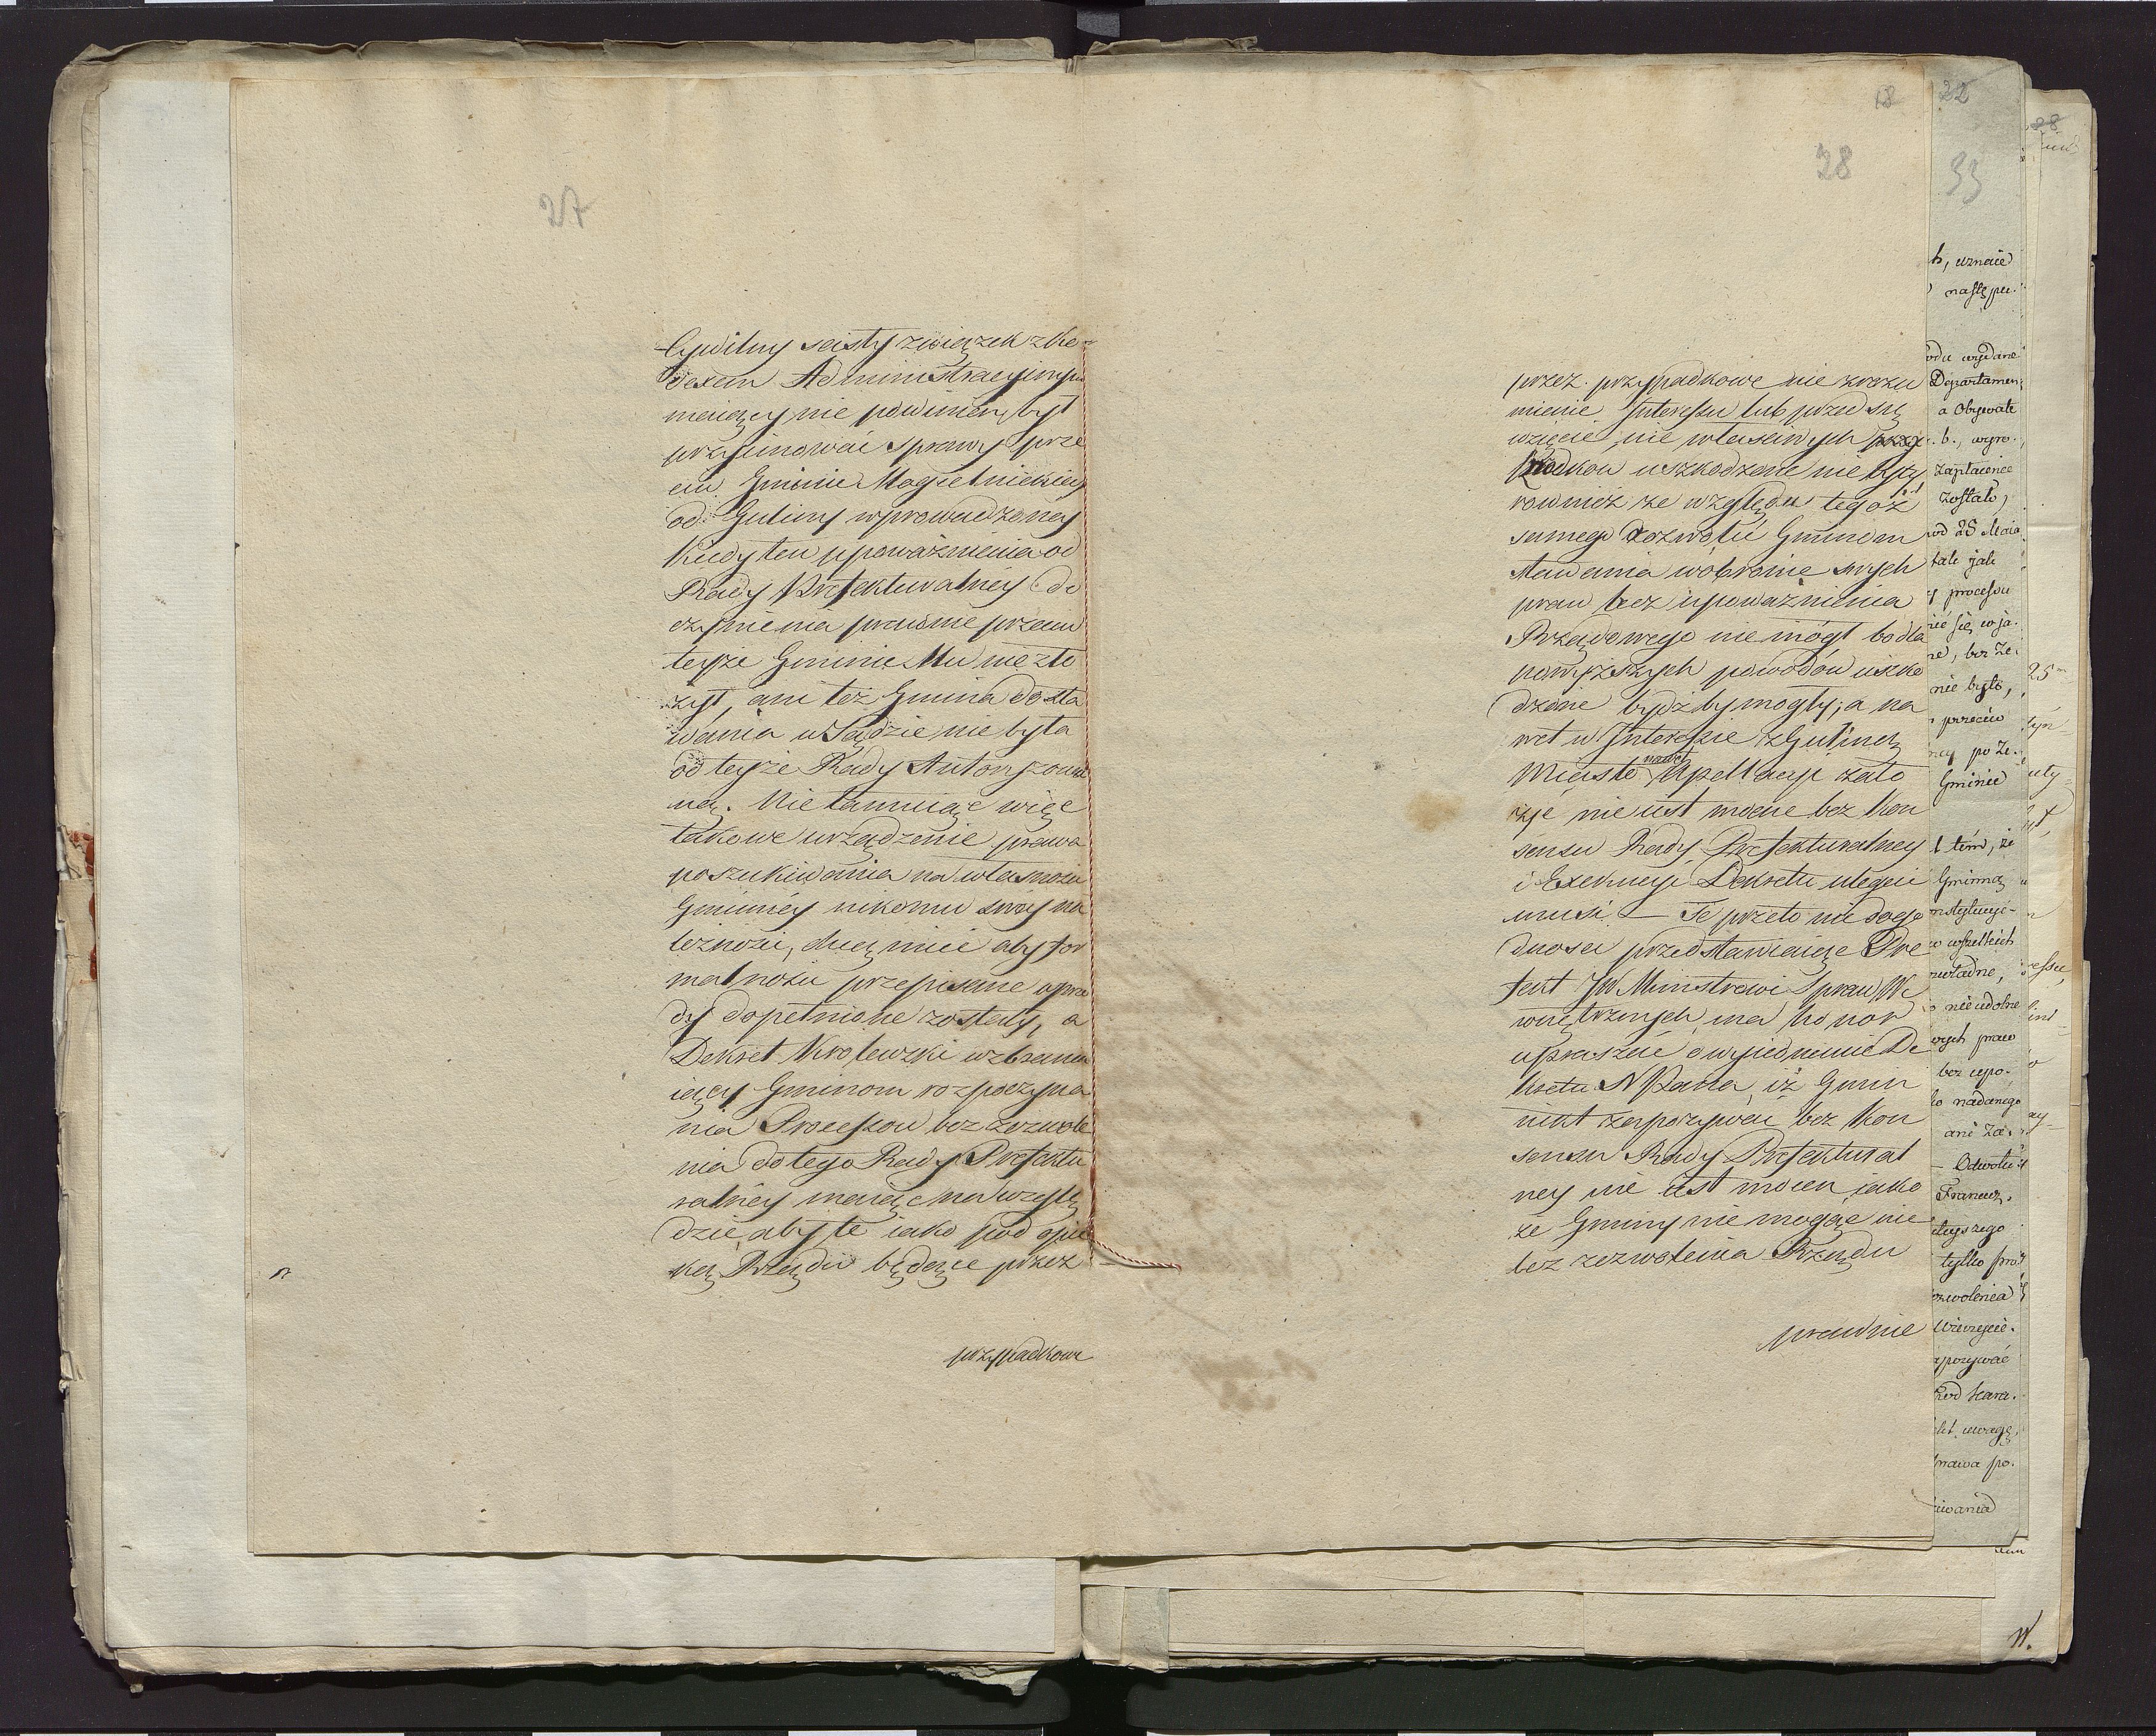 27
Cywilny scisły związek z Ko
dexem Administracyinym
maiący nie powinien był
przyimować sprawy prze
ciw Gminie Mogielnickiey
od Guliny wprowadzoney
kiedy ten upoważnienia od
Rady Prefekturalney do
czynienia prawnie przeciw
teyże Gminie Mu nie zło
żył, ani też Gmina do sta
wania w Sądzie nie była
od teyże Rady Autoryzowa
ną. Nie tamuiąc więc
takowe urządzenie prawa
poszukiwania na własności
Gminney nikomu swey na
leżności, chcą mieć aby for
malności przepisane wprzo
dy dopełnione zostały, a
Dekret Krolewski wzbrania
iący Gminom rozpoczyna
nia Processow bez zezwole
nia do tego Rady Prefektu
ralney maiąc na wzglę
dzie, aby te iako pod opie
ką Rządu będące przez
przypadkowe
18
28
przez przypadkowe nie zrozu
mienie Interessu lub przed się
wzięcie nie własciwych
srzodkow uszkodzone nie były
rownież ze względu tegoż
samego dozwolić Gminom
stawania w obronie swych
praw bez upoważnienia
Rządowego nie mógł bo dla
powyższych powodów uszko
dzone bydź by mogły; a na
wet w Interessie z Guliną
Miasto nawet Apellacyi zało
żyć nie iest mocne bez Kon
sensu Rady Prefekturalney
i Exekucyi Dekretu uledz
musi — Te przeto nie dogo
dnosci przedstawiaiąc Pre
fekt JW Ministrowi Spraw We
wnętrznych, ma honor
upraszać o wyiednanie De
kretu N Pana, iż Gmin
nikt zapozywać bez Kon
sensu Rady Prefektural
ney nie iest mocen, iako
że Gminy nie mogąc nic
bez zezwolenia Rządu
prawnie
22
33
h, uznaie
nastpu.
odu wydane
Departamen
a Obywate
b., wyro.
zapłacenie
zostało,
od 28 Maia
tak jak
y processu
nić się w ja.
ne, bez Ze.
nie było,
przeciw
ney po Ze.
Gminie
t tém, że
Gminną
nstytucyi-
w wszelkich
uwładne,
o nieudolne
wych praw
bez upo.
ko nadanego
ani Za.
— Odwołu
Francuz.
tylko pra
ozwolenia
apozywać
kt uwagę,
prawa po.
iwania
28
25
W.